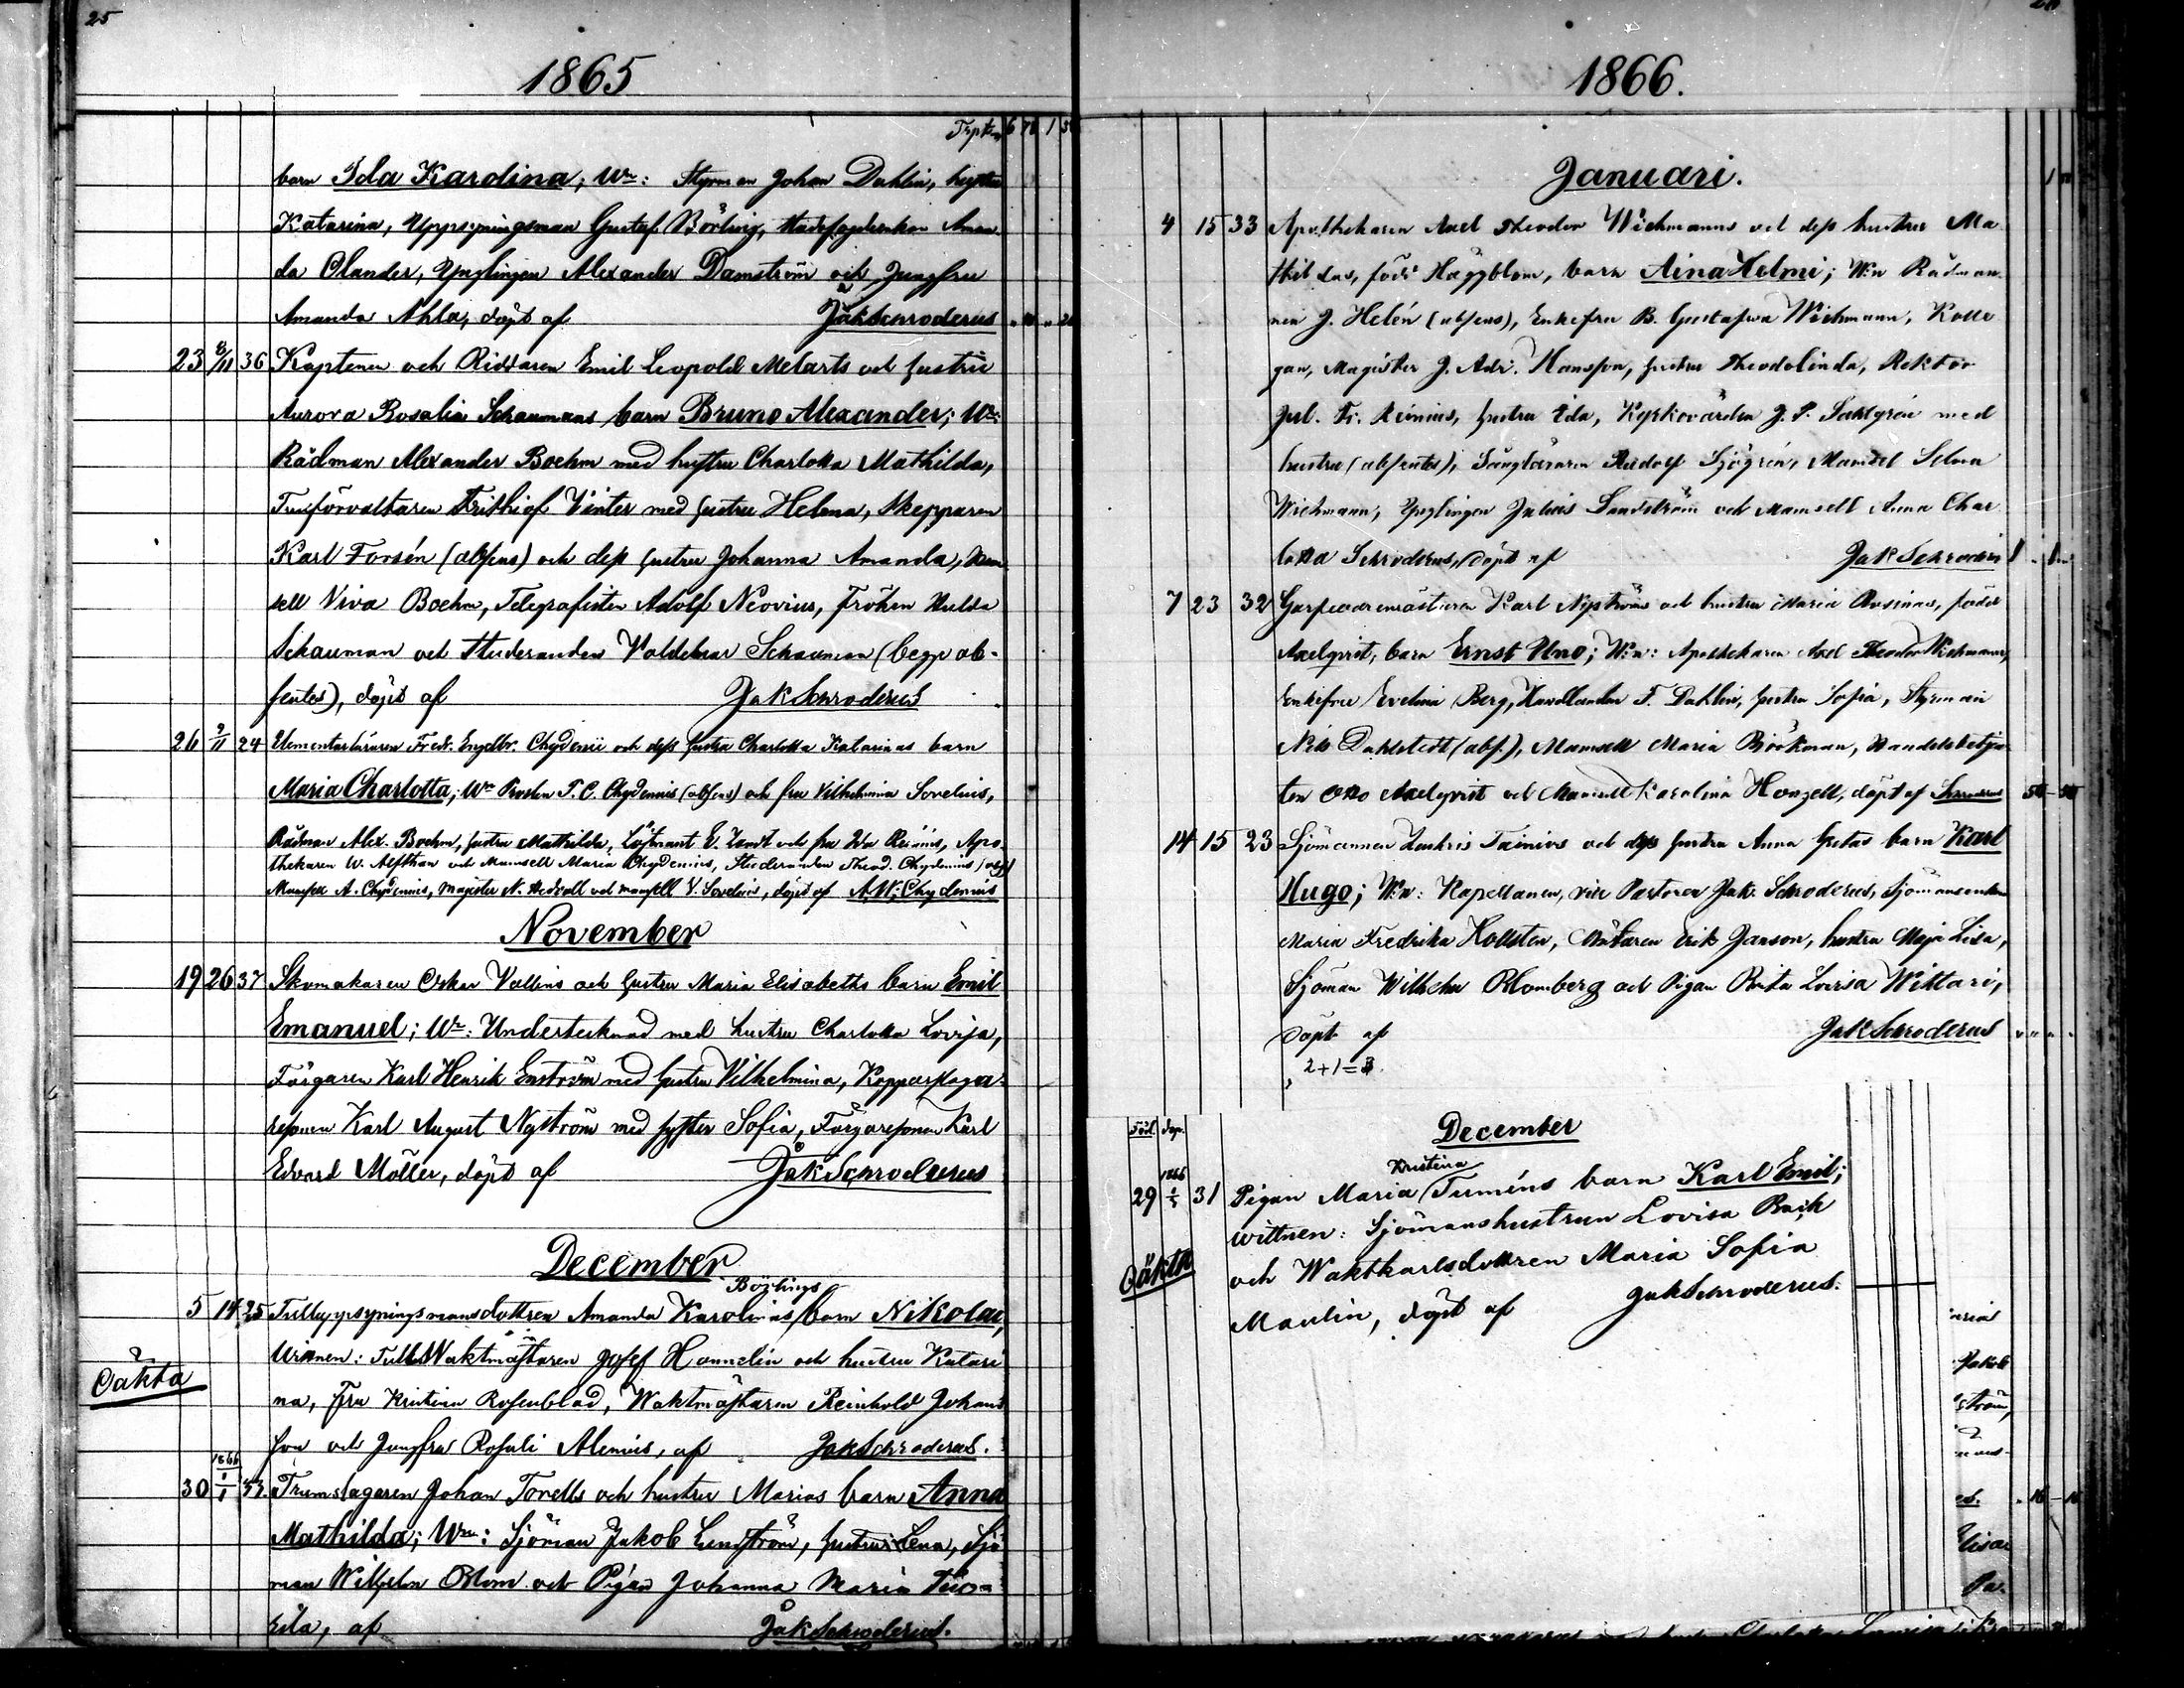 25
1865
barn Ida Karolina; Wn: Styrman Johan Dahlin, hustru
Katarina, Uppsyningsman Gustaf Börling, Aman
da Olander, Ynglingen Alexander Damström och Jungfru
Amanda Ahla, döpt af Jak Schroderus
23 8/11 36 Kaptenen och Riddaren Emil Leopold Melarts och hustru
Aurora Rosalia Schaumans barn Bruno Alexander; Wn:
Rådman Alexander Boehm med hustru Charlotta Mathilda,
Frithiof Vinter med hustru Helena, Skepparen
Karl Forsén (absens) och dess hustru Johanna Amanda, Mam
sell Viva Boehm, Telegrafisten Adolf Neovius, Fröken Hulda
Schauman och Studeranden Valdemar Schauman (begge ab-
sentes), döpt af Jak Schroderus
26 9/11 24 Elementarläraren Fredr. Engelbr. Chydenii och dess hustru Charlotta Katarinas barn
Maria Charlotta; Wn Prosten J. C. Chydenius (absens) och fru Vilhelmina Sovelius,
Rådman Alex. Boehm, hustru Mathilda, Löjtnant E. och fru Ida Reinius, Apo-
thekaren W. Alfthan och Mamsell Maria Chydenius, Studeranden Theod. Chydenius (abs)
Mamsell A. Chydenius, Magister N. och mamsell V. Sovelius, döpt af A.H. Chydenius
November
19 26 37 Skomakaren Oskar Vallins och hustru Maria Elisabeths barn Emil
Emanuel; Wn: Undertecknad med hustru Charlotta Lovisa,
Färgaren Karl Henrik Enström med hustru Vilhelmina, Kopparslaga-
resonen Karl August Nyström med syster Sofia, Färgaresonen Karl
Edvard Möller, döpt af Jak Schroderus
December
Börlings
5 14 25 Tulluppsyningsmansdottren Amanda Karolinas barn Nikolai,
Oäkta
Witnen: Tull Waktmästaren Josef Hannelin och hustru Katari
na, Fru Kristina Rosenblad, Waktmästaren Reinhold Johans
son och Jungfru Rosali Alenius, af Jak Schroderus.
1866
30 1/1 Trumslagaren Johan Torells och hustru Marias barn Anna
Mathilda; Wn: Sjöman Jakob Lundström, hustru Lena, Sjö
man Wilhelm Blom och Pigan Johanna Maria
af Jak Schroderus.
1866.
Januari.
4 15 33 Apothekaren Axel Theodor Wichmanns och dess hustru Ma
thildas, född Häggblom, barn Aina Helmi; W:n Rådman
nen J. Helén (absens), Enkefru B. Gustafva Wichmann, Kolle
gan, Magister J. Adr. Hanson, hustru Theodolinda, Rektor
Jul. Fr. Reinius, hustru Ida, Kyrkovärden J. P. Sahlgrén med
hustru (absentes), Rudolf Sjögrén, Mamsell Selma
Wichmann, Ynglingen Julius Sandström och Mamsell Anna Char
lotta Schroderus, döpt af Jak Schroderus
7 23 32 Karl Nyströms och hustru Maria Rosinas, född
Axelqvist, barn Ernst Uno; W:n: Apothekaren Axel Theodor Wichmann,
Enkefru Evelina Berg, Handlanden F. Dahlin, hustru Sofia, Styrman
Nils Dahlstedt (abs.), Mamsell Maria Björkman, Handelsbetjen
ten Otto Axelqvist och Mamsell Karolina Honzell, döpt af Schroderus
14 15 23 Sjömannen Zachris Tainios och dess hustru Anna Gretas barn Karl
Hugo; W:n: Kapellanen, vice Pastoren Jak. Schroderus, Sjömansenkan
Maria Fredrika Hollsten, Erik Janson, hustru Maja Lisa,
Sjöman Wilhelm Blomberg och Pigan Brita Lovisa Wittari,
döpt af Jak Schroderus
2+1=3.
December
Föd. döp.
Kristina
1866
29 31 Pigan Maria Tuméns barn Karl Emil;
Oäkta
wittnen: Sjömanshustrun Lovisa Back
och Waktkarlsdottren Maria Sofia
Maulin, döpt af Jak Schroderus.
Jakob
ström,